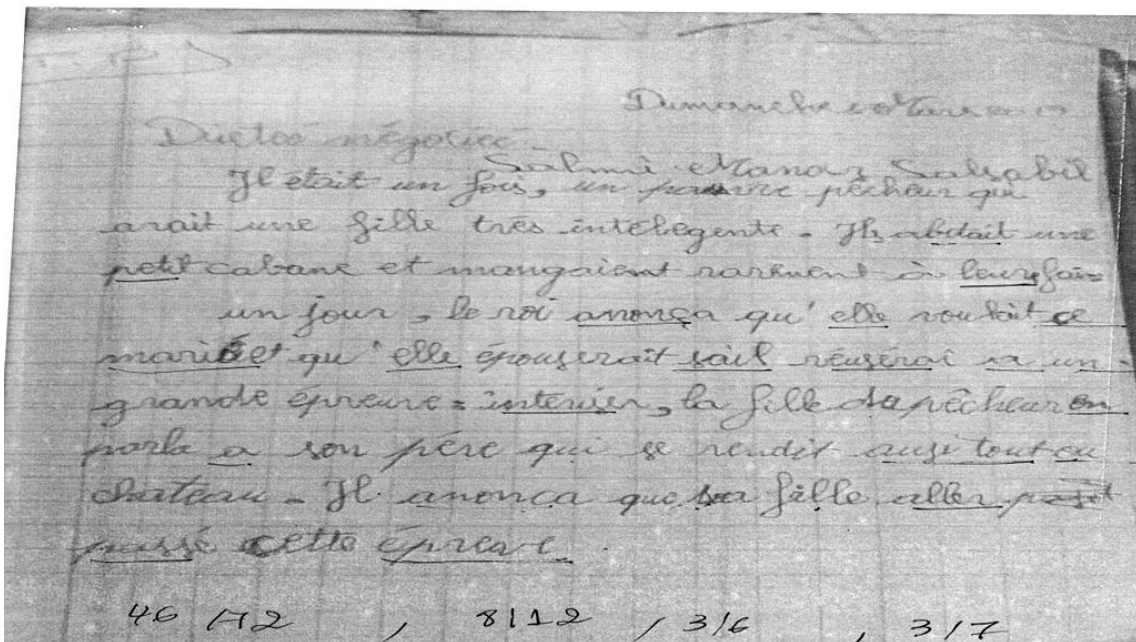 Dumanche Mars
Dictée négociée
Salmi Manar Salsabil
Il etait un fois, un pauvre pêcheur qui
avait une fille très intelegente. Ils abitait une
petit cabane et mangaient rarement à leurs fain
un jour, le roi anonça qu'elle voulait ce
mariée et qu'elle épouserait sail réusérai a un
grande épreuve = interisier, la fille du pêcheur en
parla a son père qui se rendit ausi tout au
chateau. Il anonça que sa fille aller
passé cette épreuve.
46/72, 8/12, 3/6, 3/7